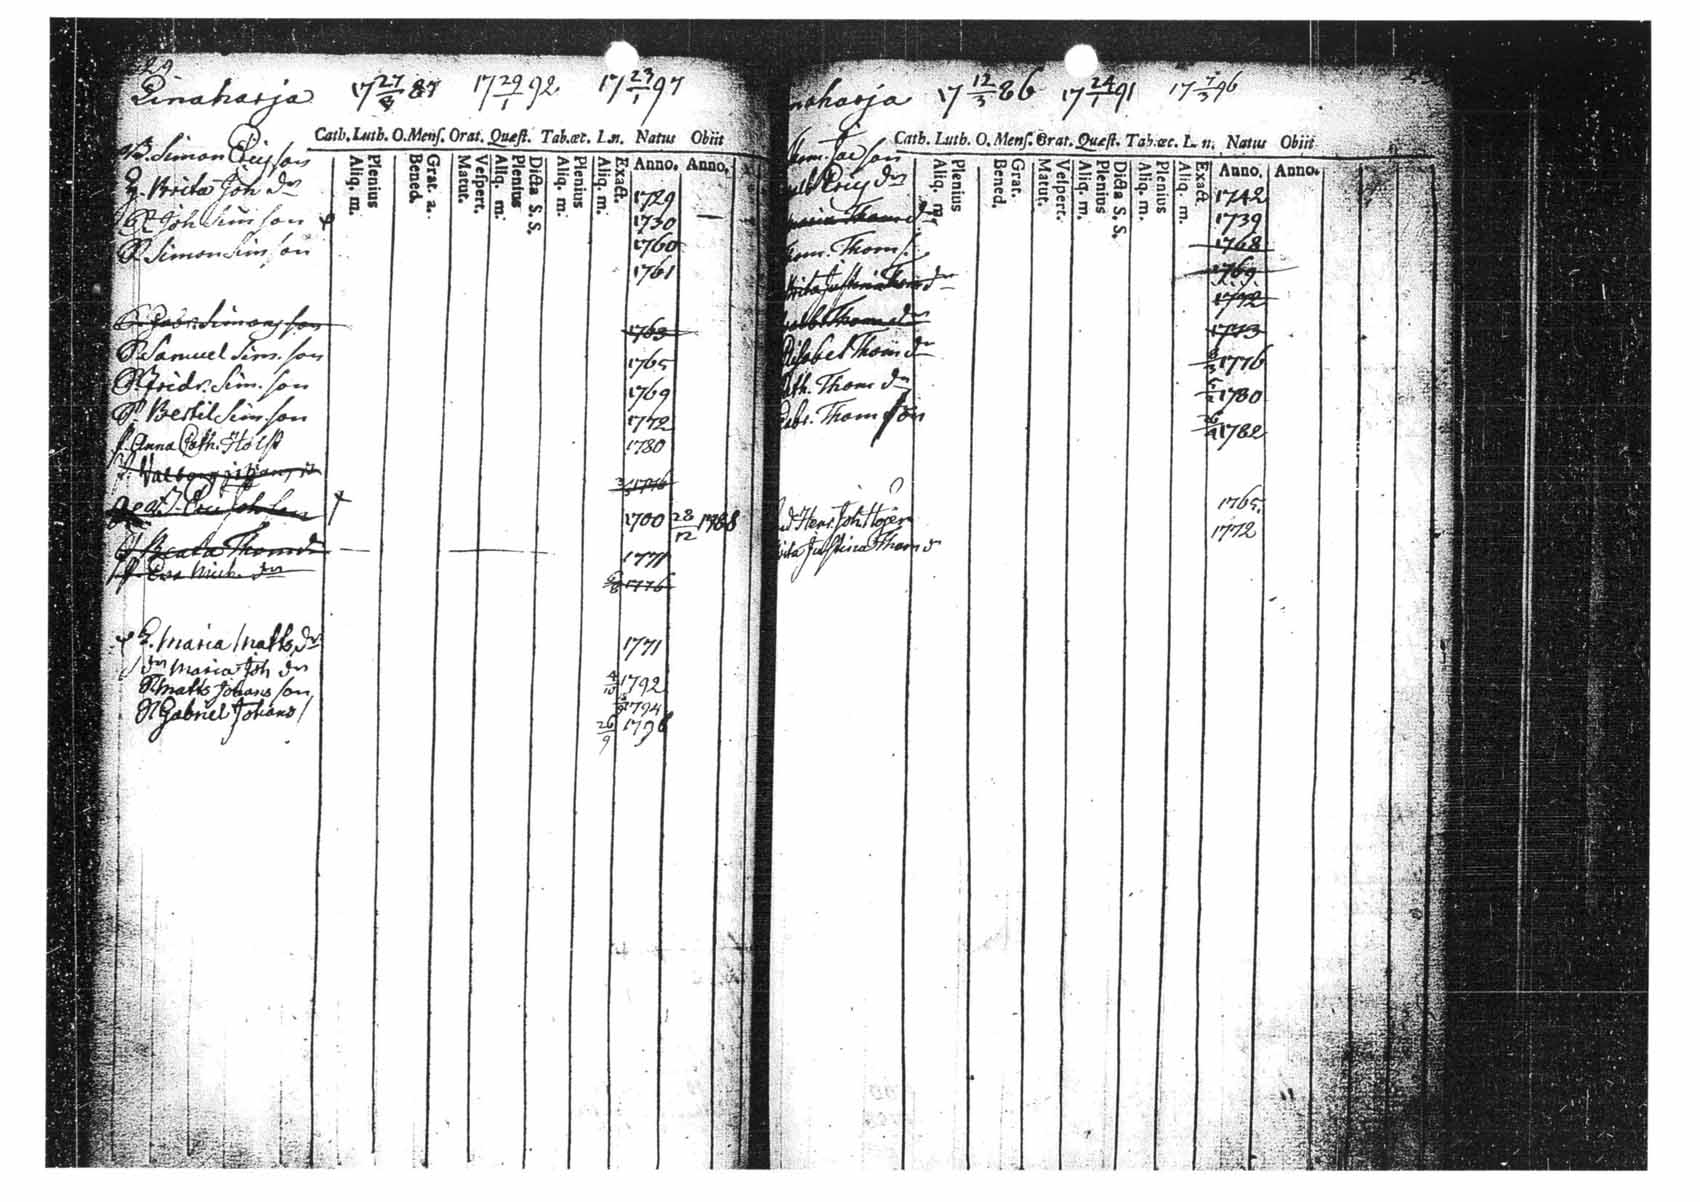 29
Pinaharja 17 27/8 87 17 29/1 92 17 23/1 97
Cath. Luth. O. Mens. Orat. Quæst. Tab.œc. L.n. Natus Obiit
Plenius Aliq. m. Grat. a. Bened. Vespert. Matut. Dicta S. S. Plenius Aliq. m. Plenius Aliq. m. Exact. Aliq. m. Anno. Anno.
B. Simon Ericsson 1729
H. Brita Joh dr 1730
S. Joh Simsson 1760
S. Simon Simsson 1761
S. Gabr. Simonsson 1763
S. Samuel Sim.son 1765
S. Fridr. Sim.son 1769
S. Bertil Simsson 1772
f. Anna Cath. Holst 1780
f. Valborg 1776
Eric Johsson 1700 28/12 1788
f. Beata Thom dr 1771
f. Eva Mich. dr 1776
H. Maria Matts dr 1771
dr Maria Joh dr 4/10 1792
S Matts Johansson 1794
S Gabriel Johans 26/9 1796
naharja 17 12/3 86 17 24/1 91 17 7/3 96
Cath. Luth. O. Mens. Orat. Quæst. Tab.œc. L.n. Natus Obiit
Plenius Aliq. m. Grat. Bened. Vespert. Matut. Dicta S. S. Plenius Aliq. m. Plenius Aliq. m. Exact Aliq. m. Anno. Anno.
hom. Jacson 1742
alb Eric dr 1739
maria Thom dr 1768
hom. Thom s. 1769
rita Justina Thom dr 1772
alb. Thom dr 1773
lisabet Thom dr 1776
ath. Thom dr 1780
abr. Thomsson 26 1782
Henr. Joh Höjer 1765
rita Justina Thom d 1772